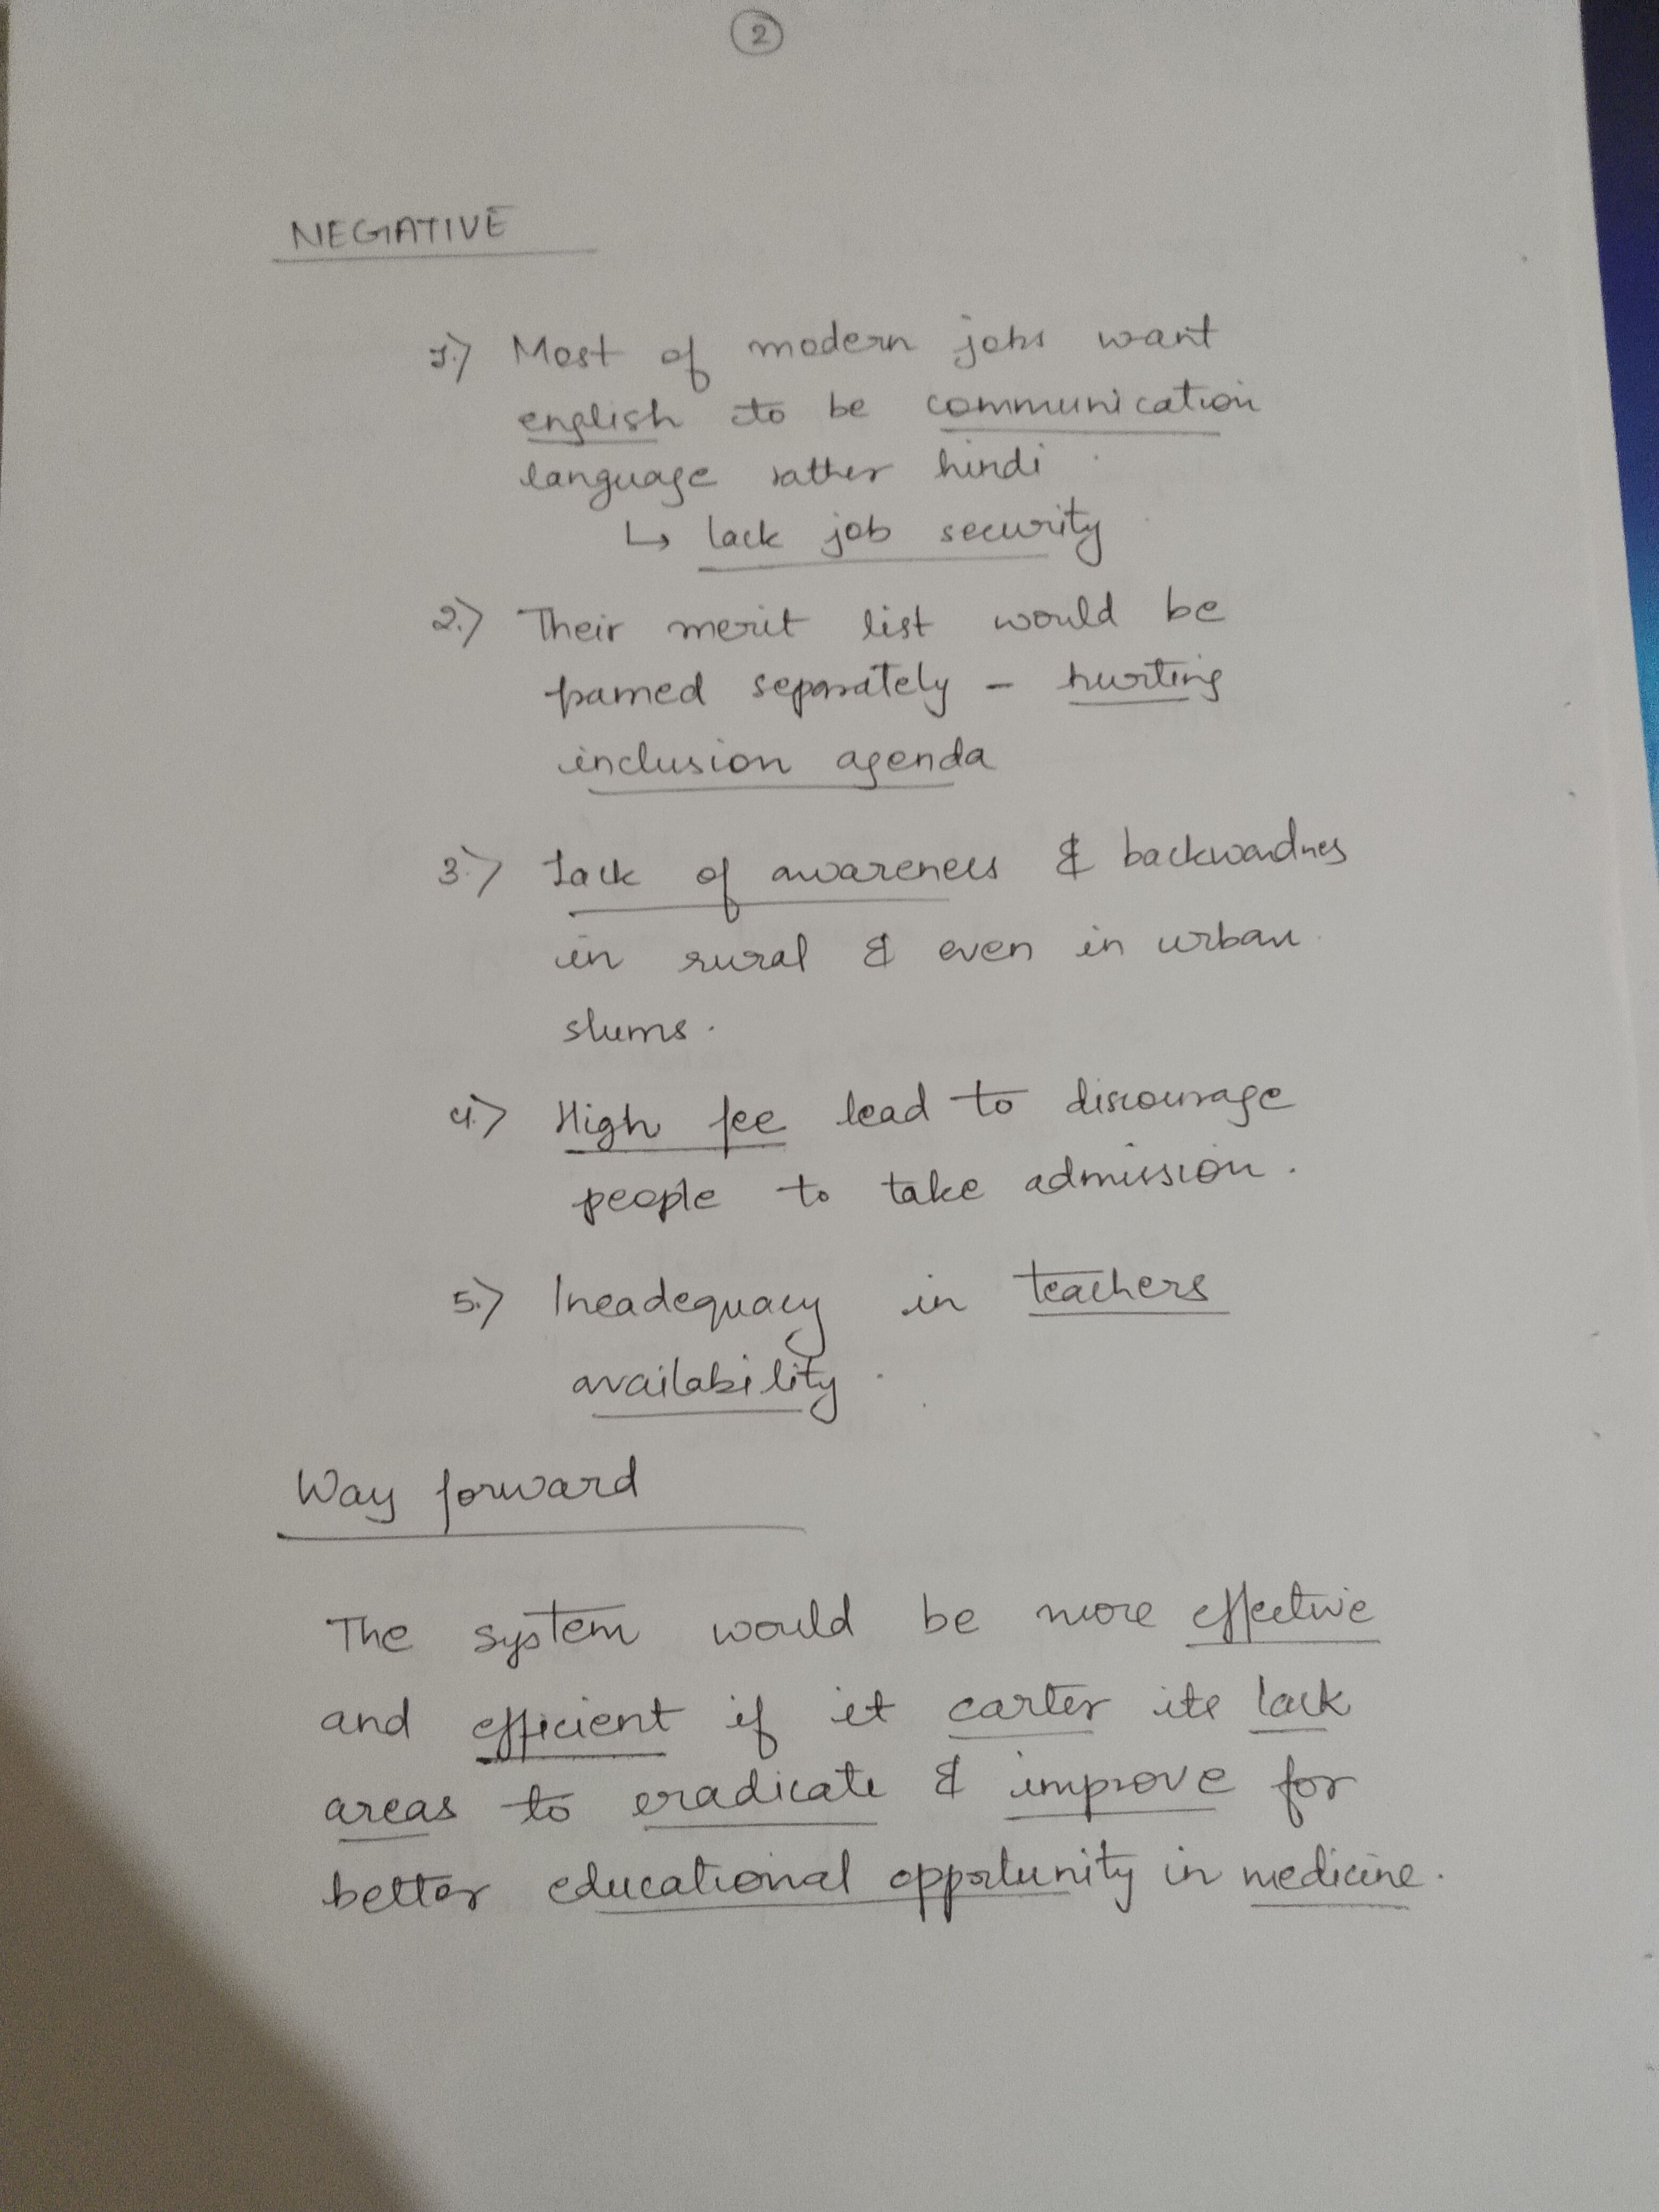 2
NEGATIVE
1.) Most of modern jobs want
english to be communication
language rather hindi
↳ lack job security
2.) Their merit list would be
separately - hurting
inclusion agenda
3.) Lack of awareness & backwardnes
in rural & even in urban
slums.
4.) High fee lead to discourage
people to take admission.
5.) Ineadequacy in teachers
availability.
Way forward
The system would be more effective
and efficient if it carter its lack
areas to eradicate & improve for
better educational opportunity in medicine.